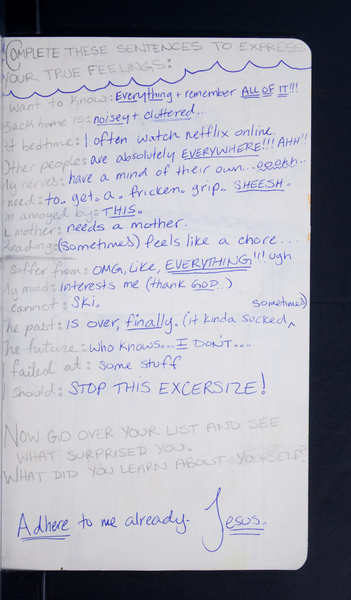 COMPLETE THESE SENTENCES TO EXPRESS
YOUR TRUE FEELINGS:
I want to know: Everything + remember ALL OF IT!!!
Back home is: noisey + cluttered...
At bedtime: I often watch netflix online
Other people: are absolutely EVERYWHERE!!! AHH!!
My nerves: have a mind of their own...
I need: to. get. a. fricken. grip. SHEESH.
I'm annoyed by: THIS.
A mother: needs a mother.
Reading: (sometimes) feels like a chore...
I suffer from: OMG, Like, EVERYTHING!!! ugh
My mind: interests me (thank GOD.)
I cannot: Ski.
The past: is over, finally. (it kinda sucked ^ sometimes)
The future: who knows... I DON'T....
I failed at: some stuff
I should: STOP THIS EXCERSIZE!
NOW GO OVER YOUR LIST AND SEE
WHAT SURPRISED YOU.
WHAT DID YOU LEARN ABOUT YOURSELF?
Adhere to me already. Jesus..